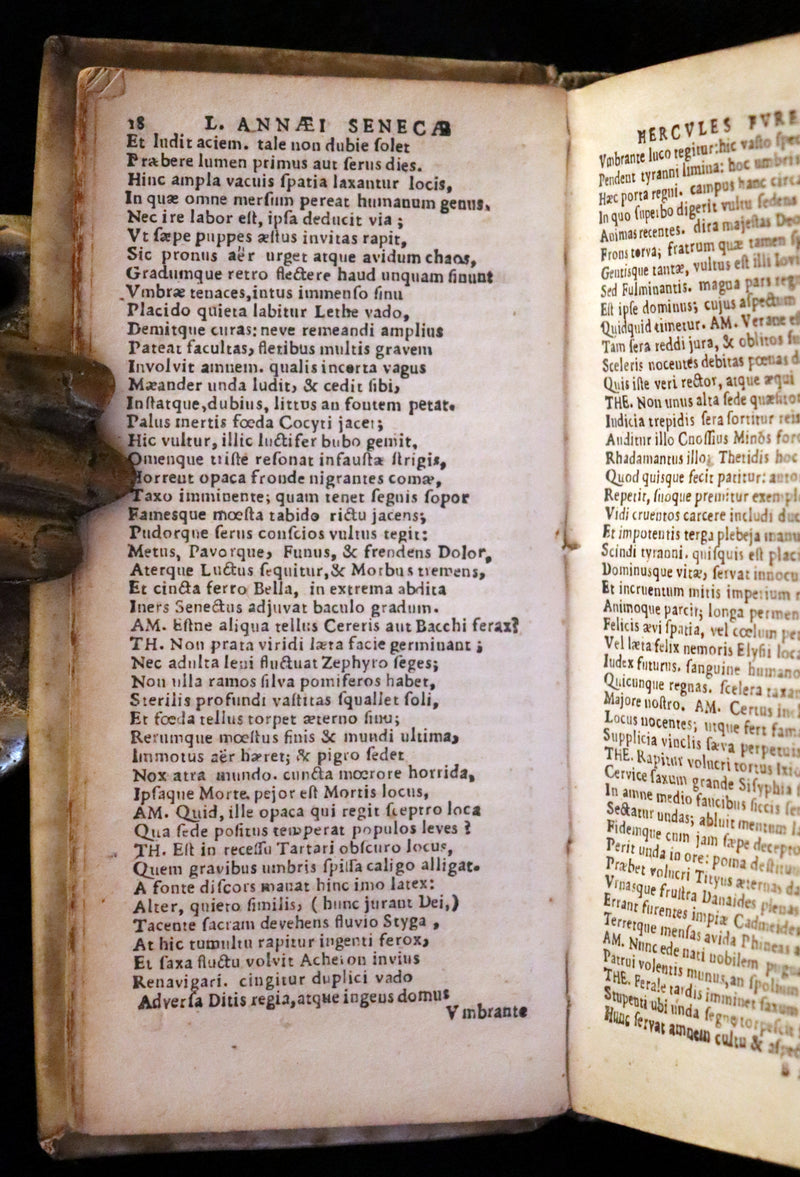 18 L. ANNÆI SENECÆ
Et ludit aciem. tale non dubie ſolet
Præbere lumen primus aut ſerus dies.
Hinc ampla vacuis ſpatia laxantur locis,
In quæ omne merſum pereat humanum genus.
Nec ire labor eſt, ipſa deducit via ;
Vt ſæpe puppes æſtus invitas rapit,
Sic pronus aër urget atque avidum chaos,
Gradumque retro flectere haud unquam ſinunt
Vmbræ tenaces, intus immenſo ſinu
Placido quieta labitur Lethe vado,
Demitque curas: neve remeandi amplius
Pateat facultas, flexibus multis gravem
Involvit amnem. qualis incerta vagus
Mæander unda ludit, & cedit ſibi,
Inſtatque, dubius, littus an fontem petat.
Palus inertis fœda Cocyti jacet;
Hic vultur, illic luctifer bubo gemit,
Omenque triſte reſonat infauſtæ ſtrigis,
Horrent opaca fronde nigrantes comæ,
Taxo imminente; quam tenet ſegnis ſopor
Fameſque mœſta tabido rictu jacens;
Pudorque ſerus conſcios vultus tegit:
Metus, Pavorque, Funus, & frendens Dolor,
Aterque Luctus ſequitur, & Morbus tremens,
Et cincta ferro Bella, in extrema abdita
Iners Senectus adjuvat baculo gradum.
AM. Eſtne aliqua tellus Cereris aut Bacchi ferax?
TH. Non prata viridi læta facie germinant ;
Nec adulta leni fluctuat Zephyro ſeges;
Non ulla ramos ſilva pomiferos habet,
Sterilis profundi vaſtitas ſquallet ſoli,
Et fœda tellus torpet æterno ſinu;
Rerumque mœſtus finis & mundi ultima,
Immotus aër hæret; & pigro ſedet
Nox atra mundo. cuncta mœrore horrida,
Ipſaque Morte pejor eſt Mortis locus,
AM. Quid, ille opaca qui regit ſceptro loca
Qua ſede poſitus temperat populos leves ?
TH. Eſt in receſſu Tartari obſcuro locus,
Quem gravibus umbris ſpiſſa caligo alligat.
A fonte diſcors manat hinc imo latex:
Alter, quieto ſimilis, ( hunc jurant Dei,)
Tacente ſacram devehens fluvio Styga ,
At hic tumultu rapitur ingenti ferox,
Et ſaxa fluctu volvit Acheron invius
Renavigari. cingitur duplici vado
Adverſa Ditis regia, atque ingens domus
Vmbrante
HERCVLES FVRE
Vmbrante luco tegitur: hic vaſto
Pendent tyranni limina: hoc umbris
Hæc porta regni. campus hanc circa
In quo ſuperbo digerit vultu ſedens
Animas recentes. dira majeſtas Deo
Frons torva; fratrum quæ tamen
Gentisque tantæ, vultus eſt illi Iovi
Sed Fulminantis. magna pars
Eſt ipſe dominus; cujus aſpectum
Quidquid timetur. AM. Verane eſt
Tam ſera reddi jura, & oblitos
Sceleris nocentes debitas pœnas
Quis iſte veri rector, atque æqui
THE. Non unus alta ſede quæſitor
Iudicia trepidis ſera ſortitur
Auditur illo Cnoſſius Minos
Rhadamantus illo; Thetidis hoc
Quod quisque fecit patitur:
Repetit, ſuoque premitur
Vidi cruentos carcere includi
Et impotentis terga plebeja
Scindi tyranni. quiſquis eſt
Dominusque vitæ, ſervat
Et incruentum mitis imperium
Animoque parcit; longa
Felicis ævi ſpatia, vel cœlum
Vel læta felix nemoris Elyſii
Iudex futurus. ſanguine humano
Quicunque regnas. ſcelera
Majore noſtro. AM. Certus
Locus nocentes; utque fert
Supplicia vinclis ſæva perpetuis
THE. Rapitur volucri tortus
Cervice ſaxum grande Siſyphia
In amne medio faucibus ſiccis
Sectatur undas; abluit mentum
Fidemque cum jam ſæpe
Perit unda in ore: poma
Præbet volucri Tityus æternas
Vrnasque fruſtra Danaides
Errant furentes impiæ
Terretque menſas avida
AM. Nunc ede nati nobilem
Patrui volentis munus, an
THE. Ferale tardis imminet
Stupenti ubi unda ſegne
Hunc ſervat amnem cultu &